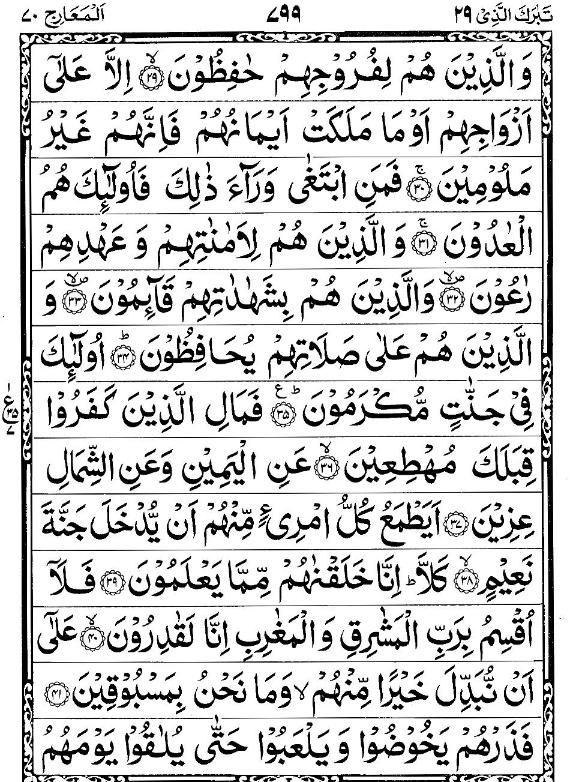 تَبٰرَكَ الَّذِىْ ٢٩ ٧٩٩ اَلْمَعَارِج ٧٠
وَالَّذِيْنَ هُمْ لِفُرُوْجِهِمْ حٰفِظُوْنَ ﴿٢٩﴾ۙ اِلَّا عَلٰٓى
اَزْوَاجِهِمْ اَوْمَا مَلَكَتْ اَيْمَانُهُمْ فَاِنَّهُمْ غَيْرُ
مَلُوْمِيْنَ ﴿٣٠﴾ۚ فَمَنِ ابْتَغٰى وَرَآءَ ذٰلِكَ فَاُولٰٓئِكَ هُمُ
الْعٰدُوْنَ ﴿٣١﴾ۚ وَالَّذِيْنَ هُمْ لِاَمٰنٰتِهِمْ وَ عَهْدِهِمْ
رٰعُوْنَ ﴿٣٢﴾ وَالَّذِيْنَ هُمْ بِشَهٰدٰتِهِمْ قَآئِمُوْنَ ﴿٣٣﴾ وَ
الَّذِيْنَ هُمْ عَلٰى صَلَاتِهِمْ يُحَافِظُوْنَ ﴿٣٤﴾ؕ اُولٰٓئِكَ
فِىْ جَنّٰتٍ مُّكْرَمُوْنَ ﴿٣٥﴾ؕ فَمَالِ الَّذِيْنَ كَفَرُوْا
قِبَلَكَ مُهْطِعِيْنَ ﴿٣٦﴾ۙ عَنِ الْيَمِيْنِ وَعَنِ الشِّمَالِ
عِزِيْنَ ﴿٣٧﴾ اَيَطْمَعُ كُلُّ امْرِئٍ مِّنْهُمْ اَنْ يُّدْخَلَ جَنَّةَ
نَعِيْمٍ ﴿٣٨﴾ۙ كَلَّا ؕ اِنَّا خَلَقْنٰهُمْ مِّمَّا يَعْلَمُوْنَ ﴿٣٩﴾ فَلَآ
اُقْسِمُ بِرَبِّ الْمَشٰرِقِ وَالْمَغٰرِبِ اِنَّا لَقٰدِرُوْنَ ﴿٤٠﴾ۙ عَلٰٓى
اَنْ نُّبَدِّلَ خَيْرًا مِّنْهُمْ ۙ وَمَا نَحْنُ بِمَسْبُوْقِيْنَ ﴿٤١﴾
فَذَرْهُمْ يَخُوْضُوْا وَيَلْعَبُوْا حَتّٰى يُلٰقُوْا يَوْمَهُمُ